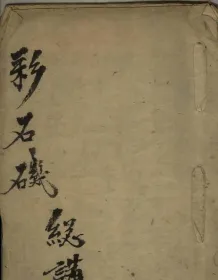 彩石磯
総講